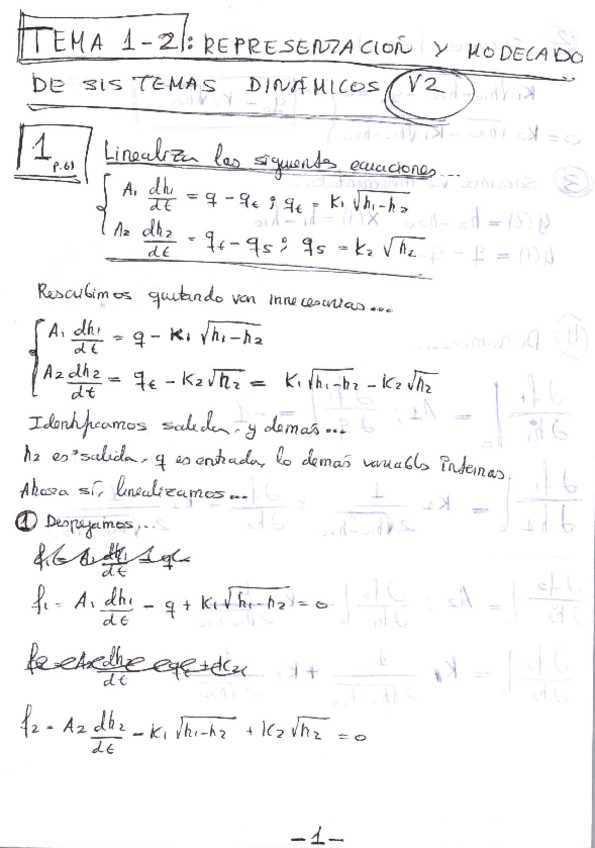 TEMA 1-2: REPRESENTACIÓN Y MODELADO
DE SISTEMAS DINÁMICOS V2
1 p.61 Linealiza las siguientes ecuaciones...
A₁ dh₁/dt = q - qₜ ; qₜ = K₁√(h₁-h₂)
A₂ dh₂/dt = qₜ - q₅ ; q₅ = K₂√h₂
Rescribimos quitando var innecesarias...
A₁ dh₁/dt = q - K₁√(h₁-h₂)
A₂ dh₂/dt = qₜ - K₂√h₂ = K₁√(h₁-h₂) - K₂√h₂
Identificamos salidas, y demás...
h₂ es salida, q es entrada, lo demás variables internas.
Ahora sí, linealizamos...
① Despejamos...
f₁ = A₁ dh₁/dt - q + K₁√(h₁-h₂) = 0
f₂ = A₂ dh₂/dt - K₁√(h₁-h₂) + K₂√h₂ = 0
-1-